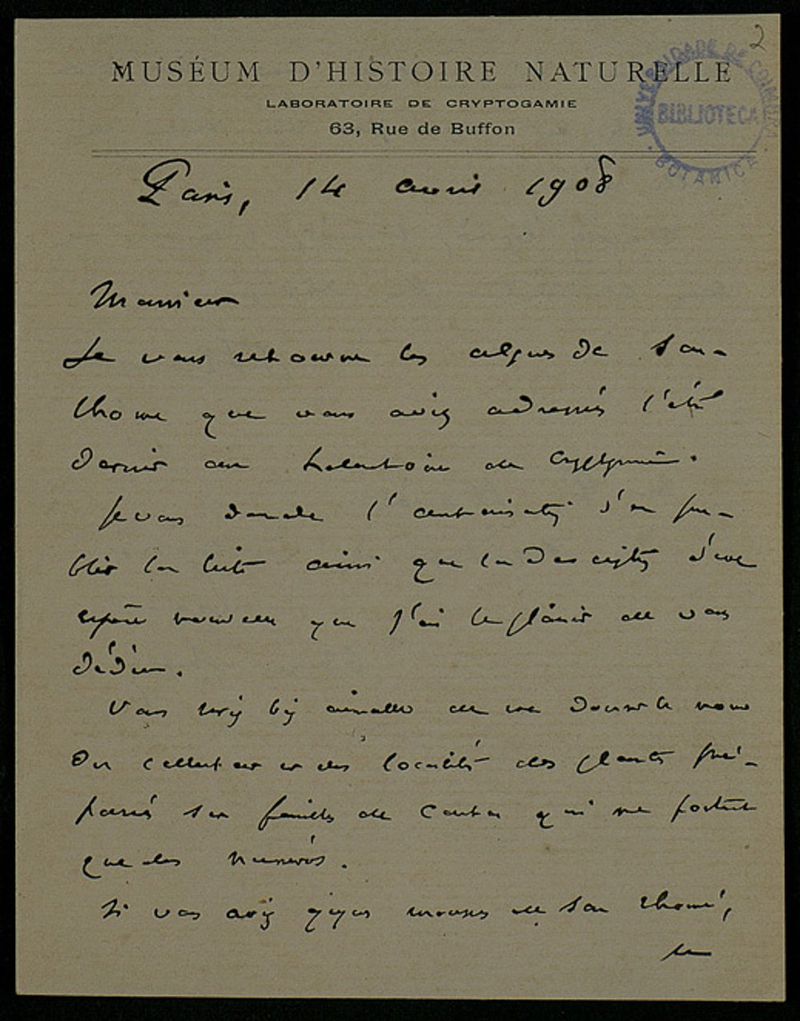 2
MUSÉUM D'HISTOIRE NATURELLE
LABORATOIRE DE CRYPTOGAMIE
63, Rue de Buffon
UNIVERSIDADE DE COIMBRA
BIBLIOTECA
BOTANICA
Paris, 14 avril 1908
Monsieur
Je vous retourne les algues de San-
thome que vous aviez adressées l'été
dernier au Laboratoire de Cryptogamie.
Je vous demande l'autorisation d'en pu-
blier la liste ainsi que la description d'une
espèce nouvelle que j'ai le plaisir de vous
dédier.
Vous seriez bien aimable de me donner le nom
du collecteur et des localités des plantes pré-
parées sur feuilles de carton qui ne portent
que des numéros.
Si vous avez quelques mousses de San Thomé,